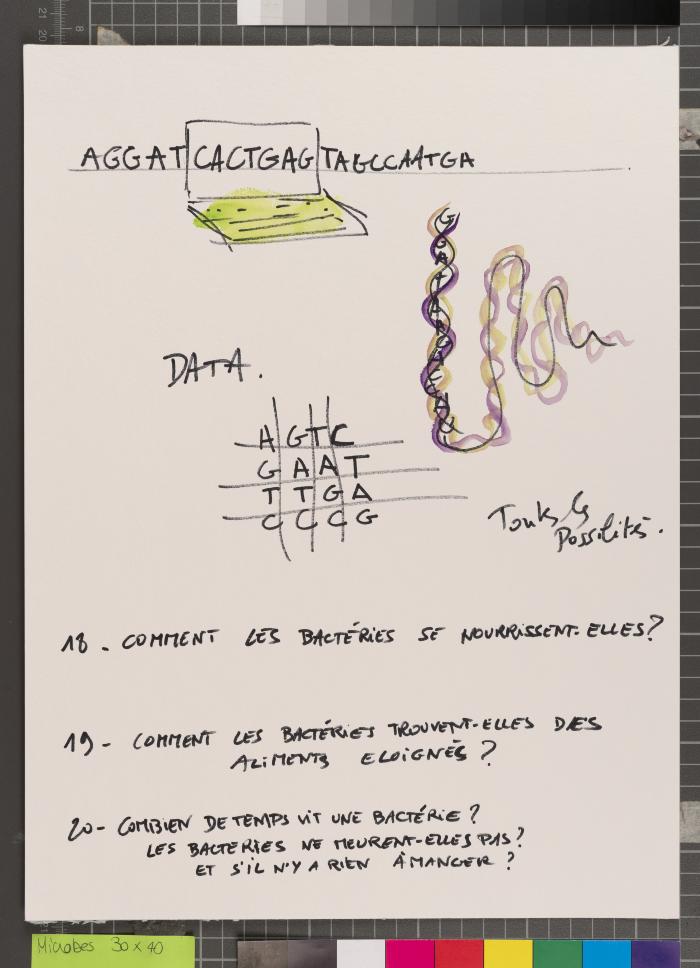 AGGAT CACTGAG TAGCCAATGA
DATA.
A G T C
G A A T
T T G A
C C C G
Toutes les
Possilités.
18. COMMENT LES BACTÉRIES SE NOURRISSENT-ELLES?
19- COMMENT LES BACTÉRIES TROUVENT-ELLES DES
ALIMENTS ELOIGNÉS ?
20- COMBIEN DE TEMPS VIT UNE BACTÉRIE ?
LES BACTERIES NE MEURENT-ELLES PAS?
ET S'IL N'Y A RIEN À MANGER ?
Microbes 30 x 40